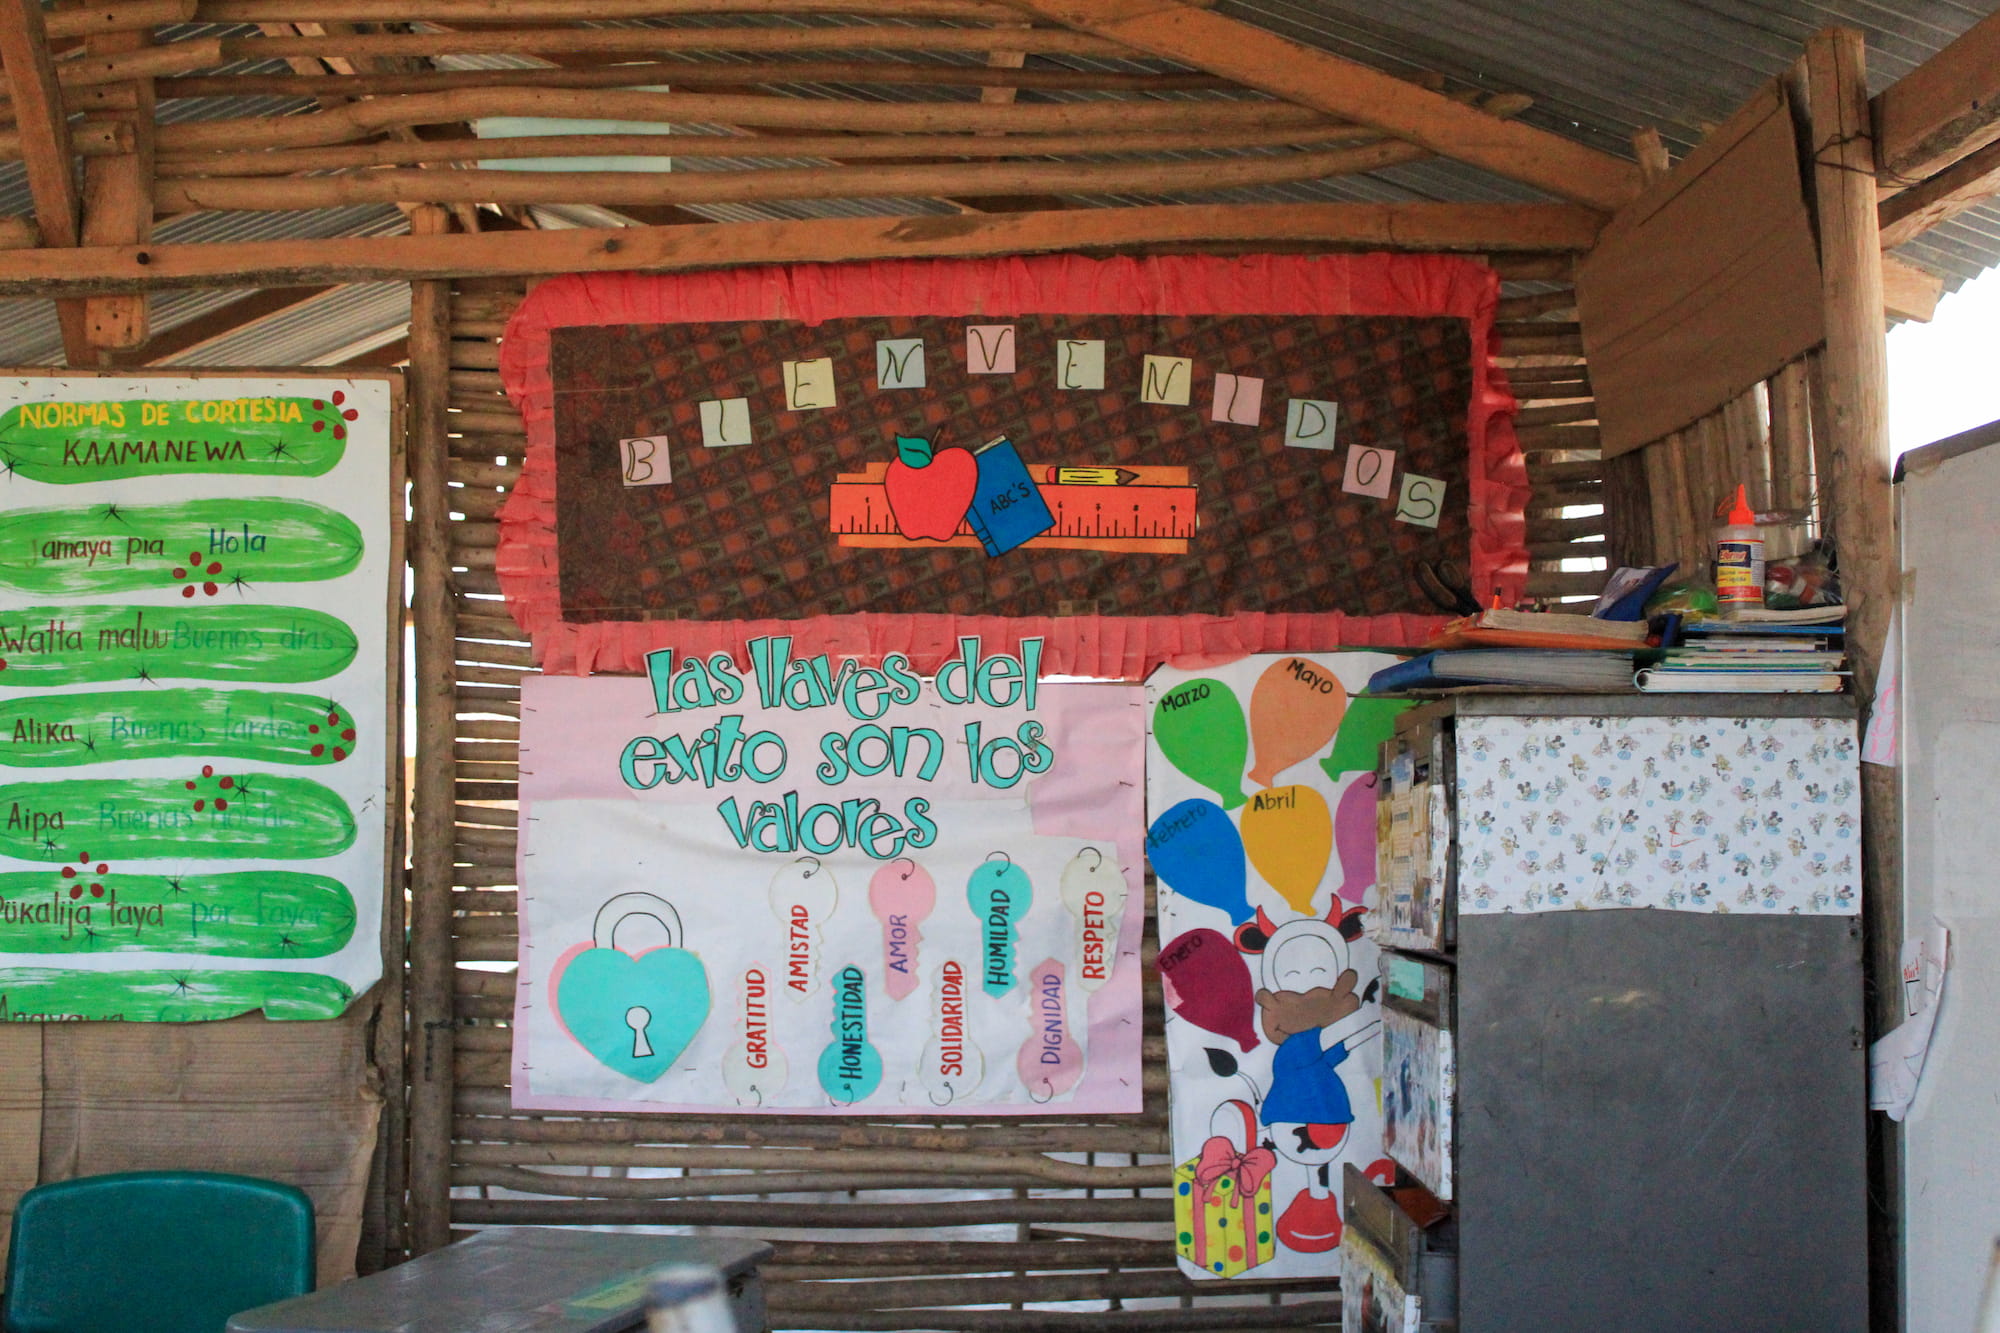 BIENVENIDOS
ABC'S
NORMAS DE CORTESIA
KAAMANEWA
Jamaya pia Hola
Watta maluu Buenos días
Alika Buenas tardes
Aipa Buenas noches
Pükalija taya por favor
Las llaves del
exito son los
valores
GRATITUD
AMISTAD
HONESTIDAD
AMOR
SOLIDARIDAD
HUMILDAD
DIGNIDAD
RESPETO
Marzo
Mayo
Febrero
Abril
Enero